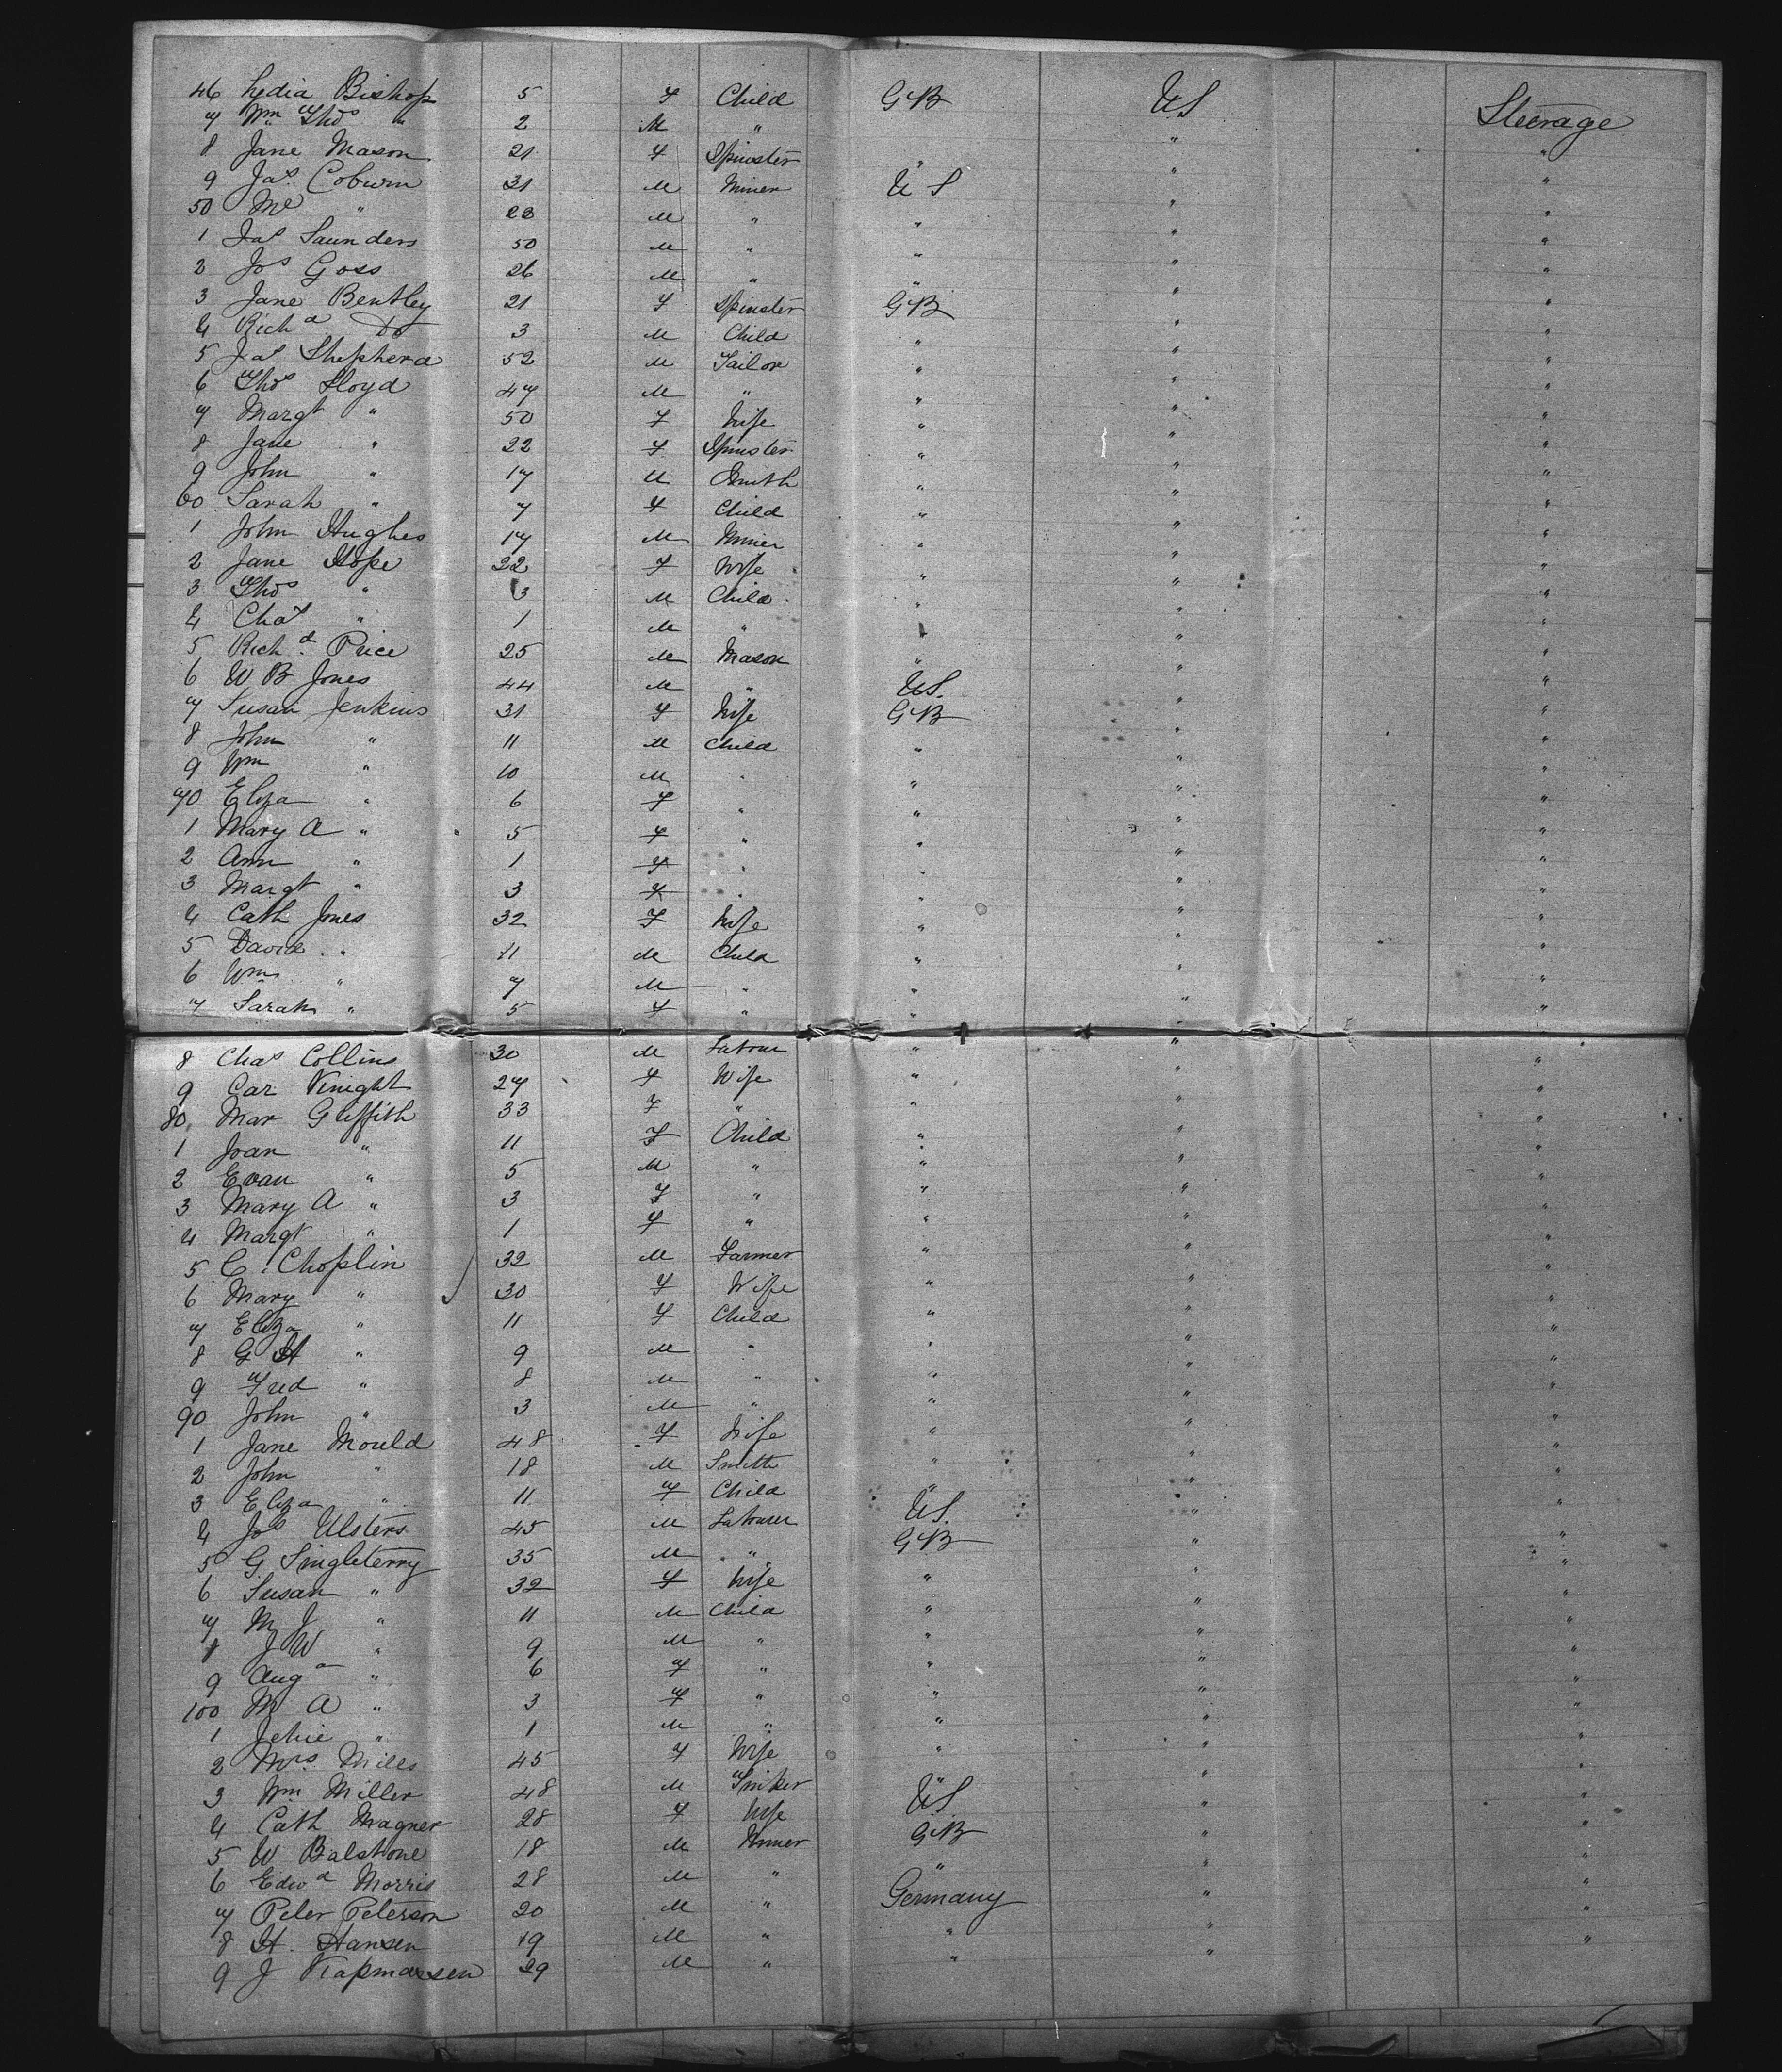 46 Lydia Bishop 5 F Child GB US Steerage
7 Wm Thos " 2 M " " "
8 Jane Mason 21 F Spinster " " "
9 Jas Coburn 31 M Miner US " "
50 " M " " " "
1 Jas Saunders 50 M " " " "
2 Jos Goss 26 M " " " "
3 Jane Bentley 21 F Spinster GB " "
4 Richd Do 3 M Child " " "
5 Jas Shepherd 52 M Tailor " " "
6 Thos Lloyd 47 M " " " "
7 Margt " 50 F Wife " " "
8 Jane " 22 F Spinster " " "
9 John " 17 M Smith " " "
60 Sarah " 7 F Child " " "
1 John Hughes 17 M Miner " " "
2 Jane Hope 22 F Wife " " "
3 Thos " 3 M Child " " "
4 Chas " 1 M " " " "
5 Richd Price 25 M Mason " " "
6 W B Jones 44 M " US. " "
7 Susan Jenkins 31 F Wife GB " "
8 John " 11 M Child " " "
9 Wm " 10 M " " " "
70 Eliza " 6 F " " " "
1 Mary A " 5 F " " " "
2 Ann " 1 F " " " "
3 Margt " 3 F " " " "
4 Cath Jones 32 F Wife " " "
5 David " 11 M Child " " "
6 Wm " 7 M " " " "
7 Sarah " 5 F " " " "
8 Chas Collins 30 M Labour " " "
9 Car Knight 27 F Wife " " "
80 Mar Griffith 33 F " " " "
1 Joan " 11 F Child " " "
2 Evan " 5 M " " " "
3 Mary A " 3 F " " " "
4 Margt " 1 F " " " "
5 C. Choplin 32 M Farmer " " "
6 Mary " 30 F Wife " " "
7 Eliza " 11 F Child " " "
8 G H " 9 M " " " "
9 Fred " 8 M " " " "
90 John " 3 M " " " "
1 Jane Mould 48 F Wife " " "
2 John " 18 M Smith " " "
3 Eliza " 11 F Child " " "
4 Jos Ulsters 45 M Labourer US. " "
5 G. Singleterry 35 M " GB " "
6 Susan " 32 F Wife " " "
7 M J " 11 M Child " " "
8 J W " 9 M " " " "
9 Auga " 6 F " " " "
100 M A " 3 F " " " "
1 " 1 M " " " "
2 Mrs Mills 45 F Wife " " "
3 Wm Miller 48 M US " "
4 Cath Magner 28 F Wife GB " "
5 W Balstone 18 M Miner " " "
6 Edwd Morris 28 M " " " "
7 Peter Peterson 20 M " Germany " "
8 H. Hansen 19 M " " " "
9 J 29 M " " "